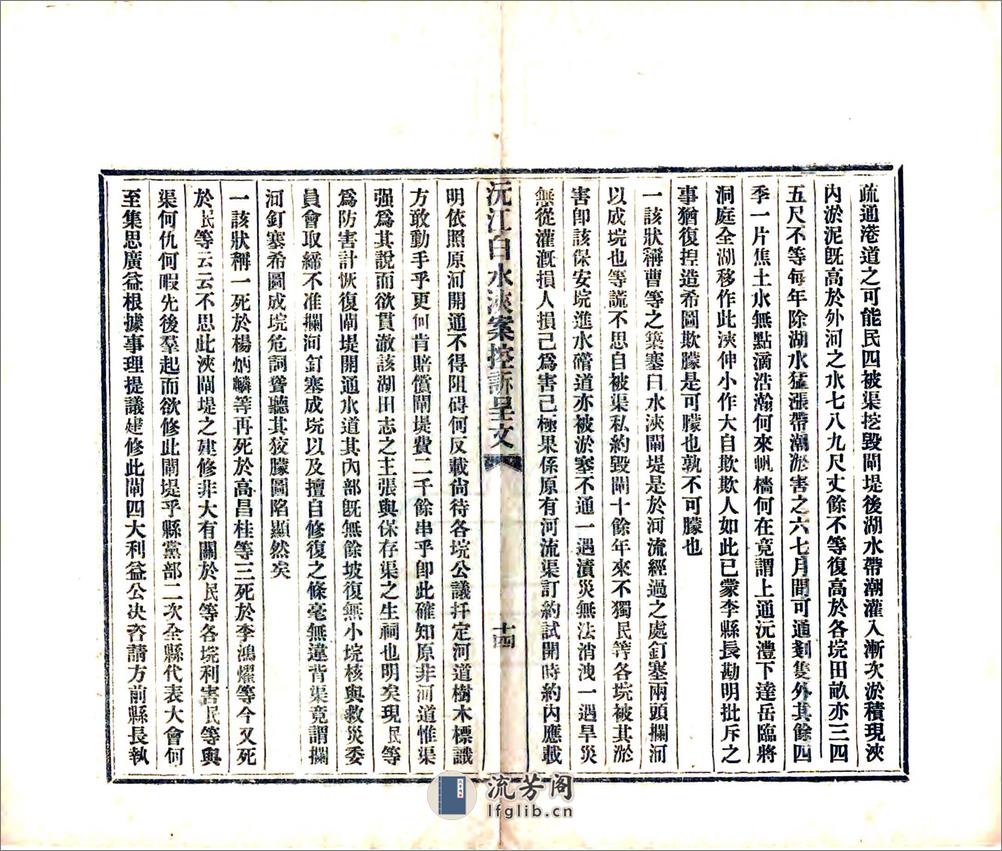 疏通港道之可能民四被渠挖毀閘堤後湖水帶潮灌入漸次淤積現浹
內淤泥旣高於外河之水七八九尺丈餘不等復高於各垸田畝亦三四
五尺不等每年除湖水猛漲帶潮淤害之六七月間可通剗隻外其餘四
季一片焦土水無點滴浩瀚何來帆檣何在竟謂上通沅澧下達岳臨將
洞庭全湖移作此浹伸小作大自欺欺人如此已蒙李縣長勘明批斥之
事猶復捏造希圖欺朦是可朦也孰不可朦也
一該狀稱曹等之築塞白水浹閘堤是於河流經過之處釘塞兩頭攔河
以成垸也等謊不思自被渠私約毀閘十餘年來不獨民等各垸被其淤
害卽該保安垸進水磖道亦被淤塞不通一遇漬災無法消洩一遇旱災
無從灌溉損人損己爲害已極果係原有河流渠訂約試開時約內應載
沅江白水浹案控訴呈文
十四
明依照原河開通不得阻碍何反載尙待各垸公議扦定河道樹木標識
方敢動手乎更何肯賠償閘堤費二千餘串乎卽此確知原非河道惟渠
强爲其說而欲貫澈該湖田志之主張與保存渠之生祠也明矣現民等
爲防害計恢復閘堤開通水道其內部旣無餘坡復無小垸核與救災委
員會取締不准攔河釘塞成垸以及擅自修復之條毫無違背渠竟謂攔
河釘塞希圖成垸危詞聳聽其狡朦圖陷顯然矣
一該狀稱一死於楊炳麟等再死於高昌桂等三死於李鴻燿等今又死
於民等云云不思此浹閘堤之建修非大有關於民等各垸利害民等與
渠何仇何暇先後羣起而欲修此閘堤乎縣黨部二次全縣代表大會何
至集思廣益根據事理提議建修此閘四大利益公决咨請方前縣長執
流芳阁
lfglib.cn